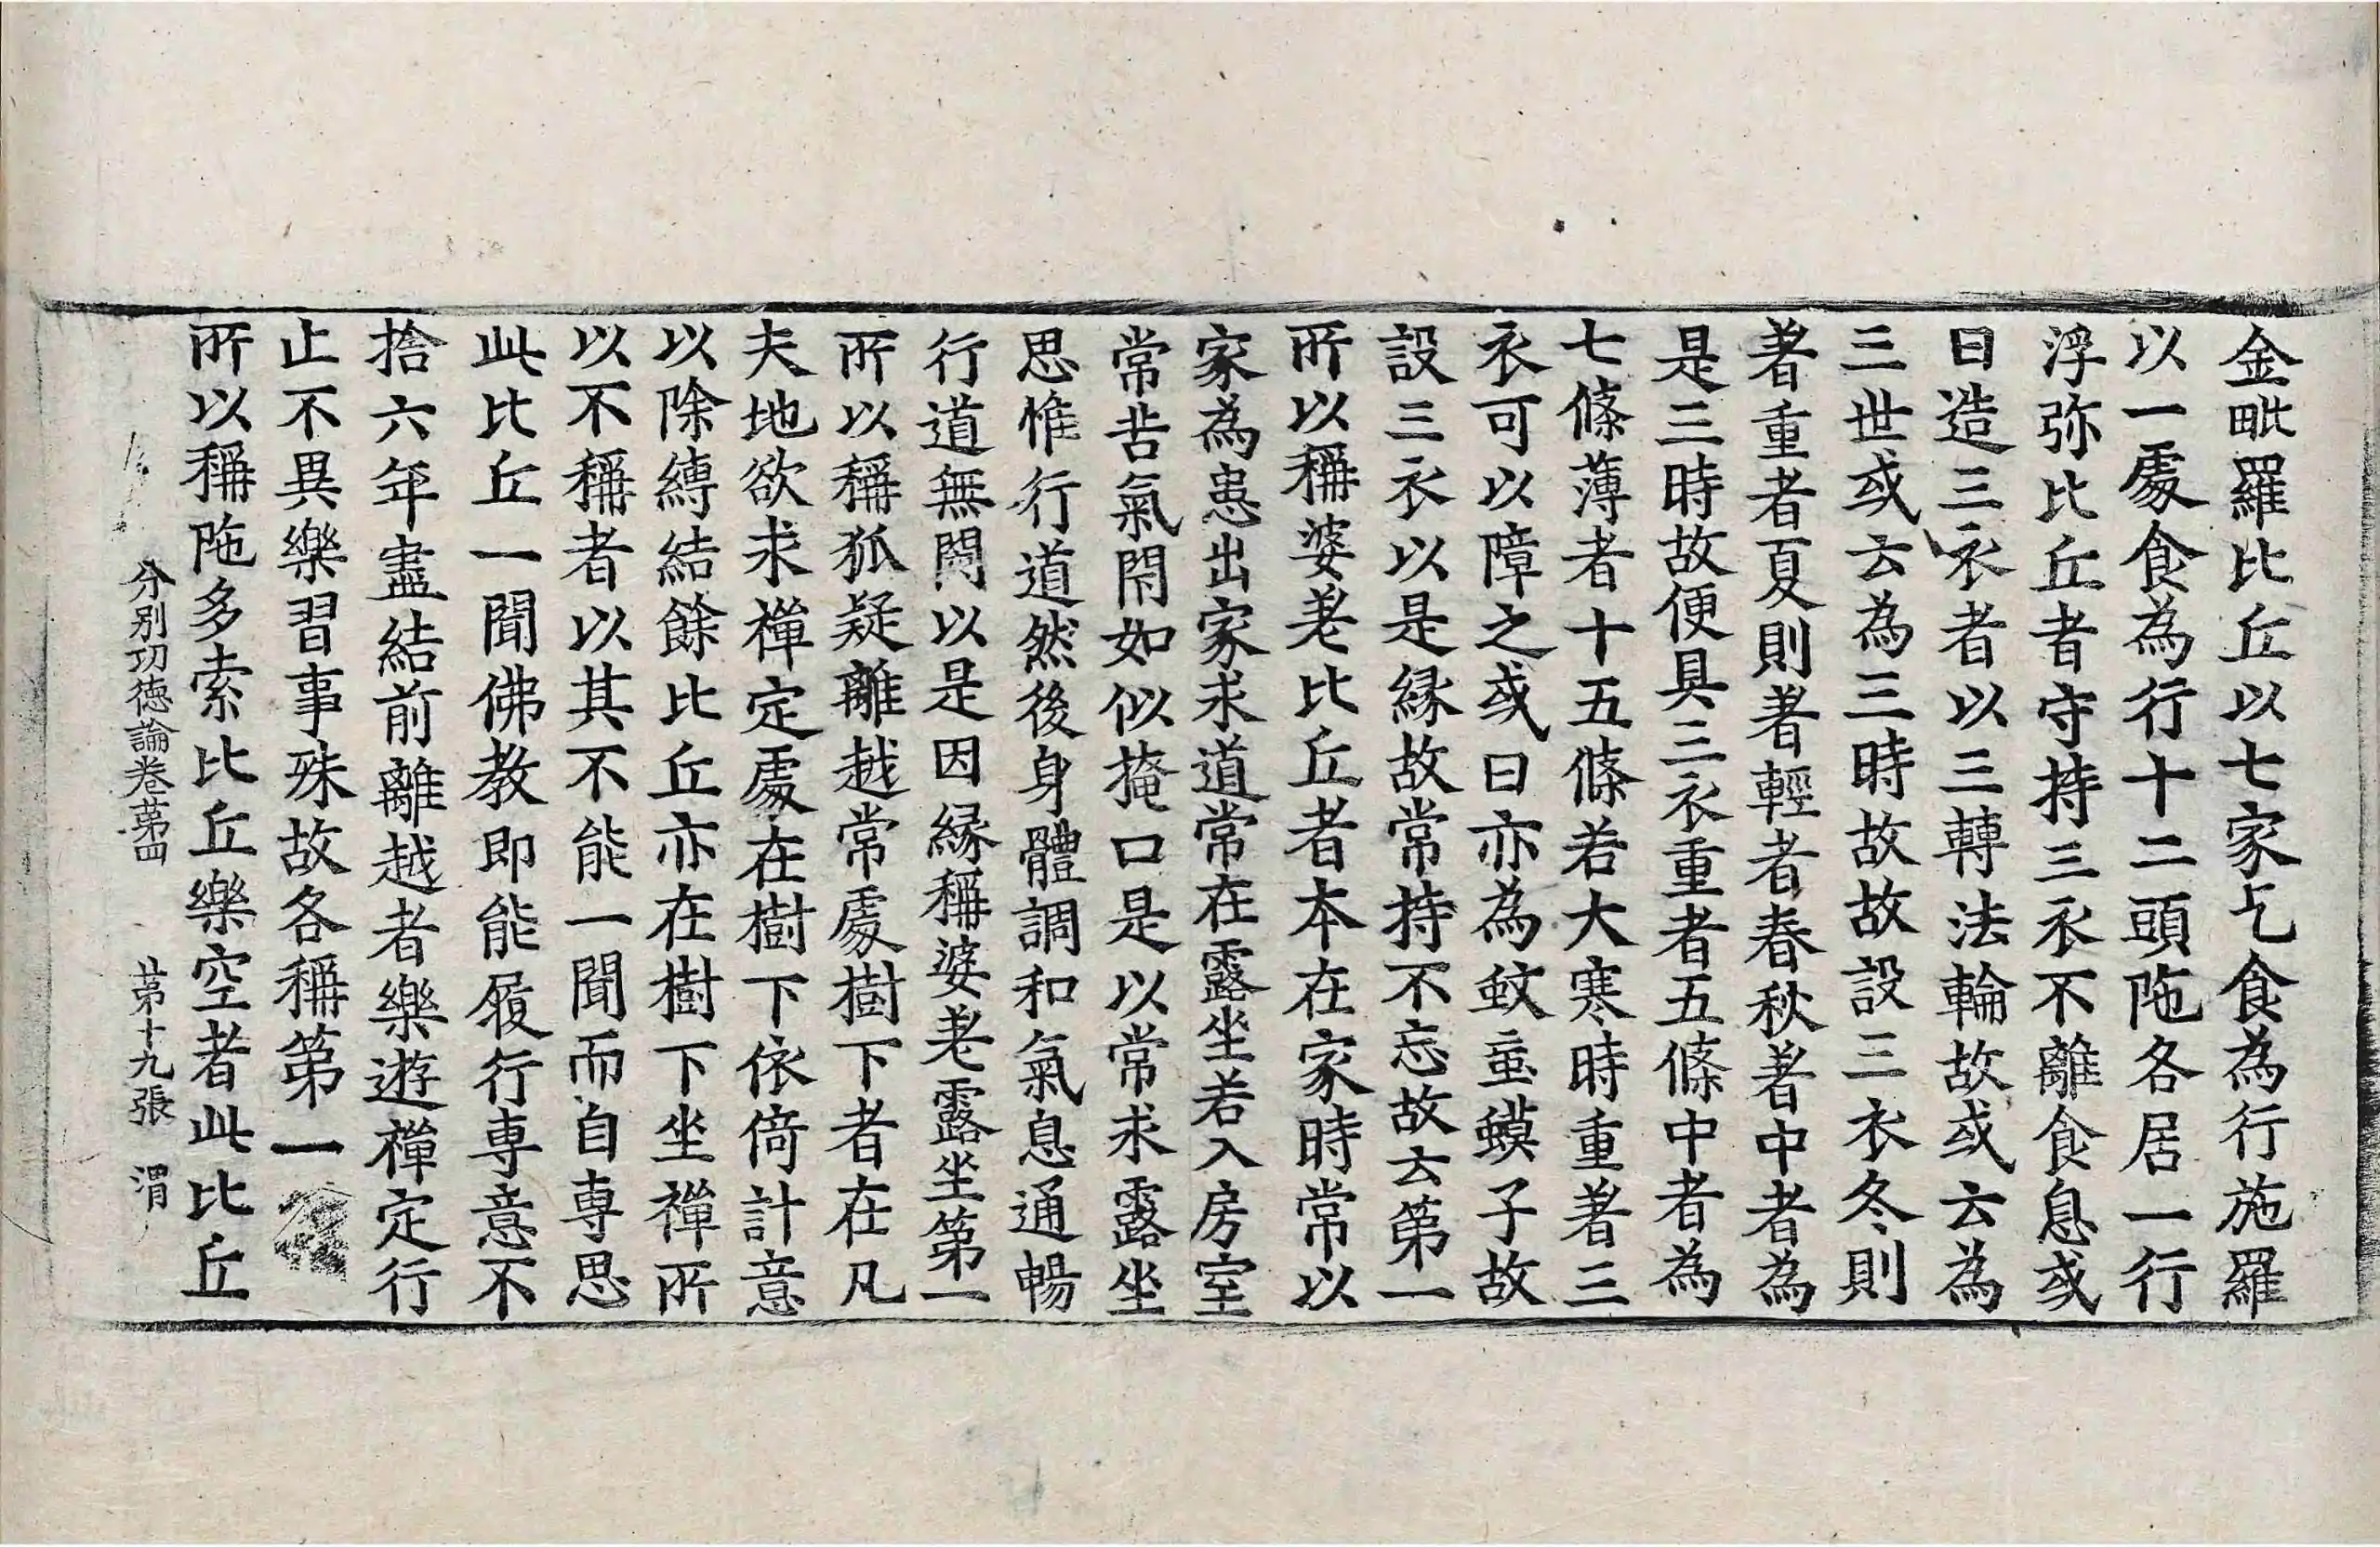 金毗羅比丘以七家乞食為行施羅
以一處食為行十二頭陁各居一行
浮弥比丘者守持三衣不離食息或
日造三衣者以三轉法輪故或云為
三世或云為三時故故設三衣冬則
著重者夏則著輕者春秋著中者為
是三時故便具三衣重者五條中者為
七條薄者十五條若大寒時重著三
衣可以障之或曰亦為蚊䖟蟆子故
設三衣以是緣故常持不忘故云第一
所以稱婆𦱔比丘者本在家時常以
家為患出家求道常在露坐若入房室
常苦氣閇如似掩口是以常求露坐
思惟行道然後身體調和氣息通暢
行道無閡以是因緣稱婆𦱔露坐第一
所以稱狐疑離越常處樹下者在凡
夫地欲求禪定處在樹下依倚計意
以除縛結餘比丘亦在樹下坐禪所
以不稱者以其不能一聞而自專思
此比丘一聞佛教即能履行專意不
捨六年盡結前離越者樂遊禪定行
止不異樂習事殊故各稱第一
所以稱陁多索比丘樂空者此比丘
分別功德論卷第四 第十九張 渭